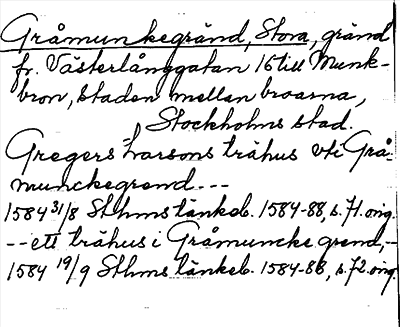 Gråmunkegränd, Stora, gränd
fr. Västerlånggatan 16 till Munk-
bron, Staden mellan broarna,
Stockholms stad.
Gregers Larsons trähus vti Grå-
munckegrend ---
1584 31/8 Sthms tänkeb. 1584-88, s. 71. orig.
-- ett trähus i Gråmuncke grend, --
1584 19/9 Sthms tänkeb. 1584-88, s. 72. orig.